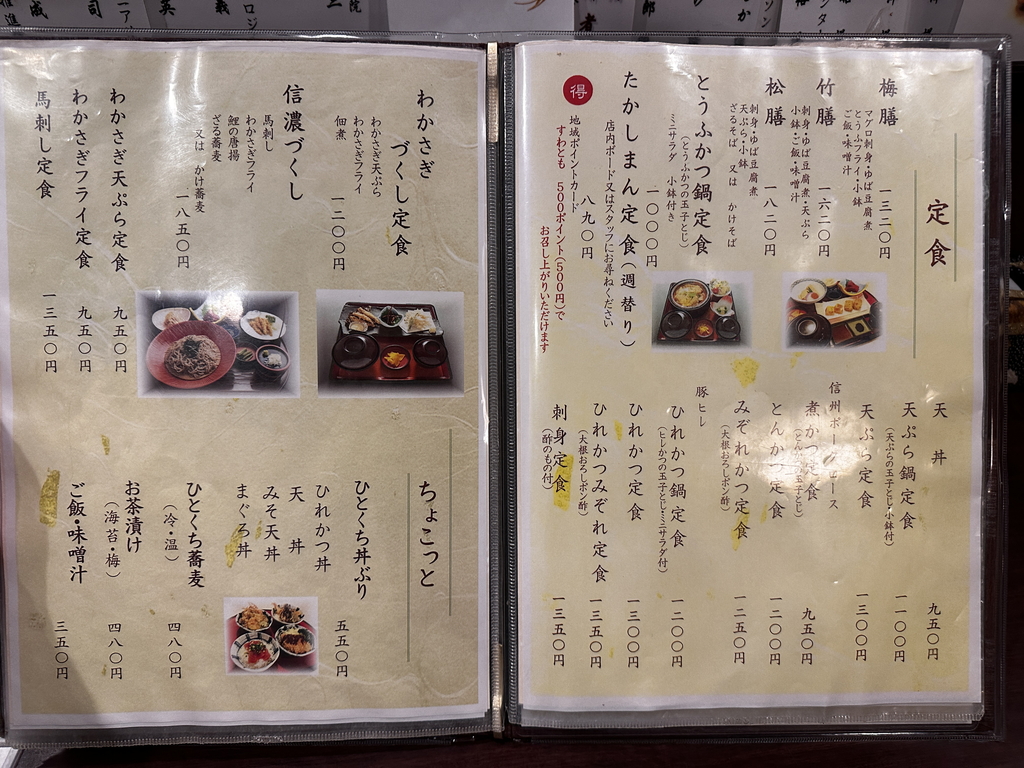 定食
梅膳
マグロ刺身・ゆば豆腐煮
とうふフライ・小鉢
ご飯・味噌汁
一三二〇円
竹膳
刺身・ゆば豆腐煮・天ぷら
小鉢・ご飯・味噌汁
一六二〇円
松膳
刺身・ゆば豆腐煮
天ぷら・小鉢
ざるそば 又は かけそば
一八二〇円
とうふかつ鍋定食
(とうふかつの玉子とじ)
ミニサラダ 小鉢付き
一〇〇〇円
たかしまん定食(週替り)
店内ボード又はスタッフにお尋ねください
八九〇円
得
地域ポイントカード
すわとも 500ポイント(500円)で
お召し上がりいただけます
天丼
九五〇円
天ぷら鍋定食
(天ぷらの玉子とじ・小鉢付)
一一〇〇円
天ぷら定食
一三〇〇円
信州ポークロース
煮かつ定食
(とんかつの玉子とじ)
九五〇円
とんかつ定食
一二〇〇円
みぞれかつ定食
(大根おろしポン酢)
一二五〇円
豚ヒレ
ひれかつ鍋定食
(ヒレかつの玉子とじ・ミニサラダ付)
一二〇〇円
ひれかつ定食
一三〇〇円
ひれかつみぞれ定食
(大根おろしポン酢)
一三五〇円
刺身定食
(酢のもの付)
一三五〇円
わかさぎ
づくし定食
わかさぎ天ぷら
わかさぎフライ
佃煮
一二〇〇円
信濃づくし
馬刺し
わかさぎフライ
鯉の唐揚
ざる蕎麦
又は かけ蕎麦
一八五〇円
わかさぎ天ぷら定食
九五〇円
わかさぎフライ定食
九五〇円
馬刺し定食
一三五〇円
ちょこっと
ひとくち丼ぶり
五五〇円
ひれかつ丼
天丼
みそ天丼
まぐろ丼
ひとくち蕎麦
(冷・温)
四八〇円
お茶漬け
(海苔・梅)
四八〇円
ご飯・味噌汁
三五〇円